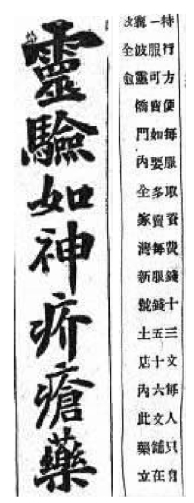 特行方便每服取資費錢十三文每人只
一服可賣如要多賣每服錢五十六文舖在
橋門內全家灣新號土店內此藥立
全愈
靈驗如神疥瘡藥